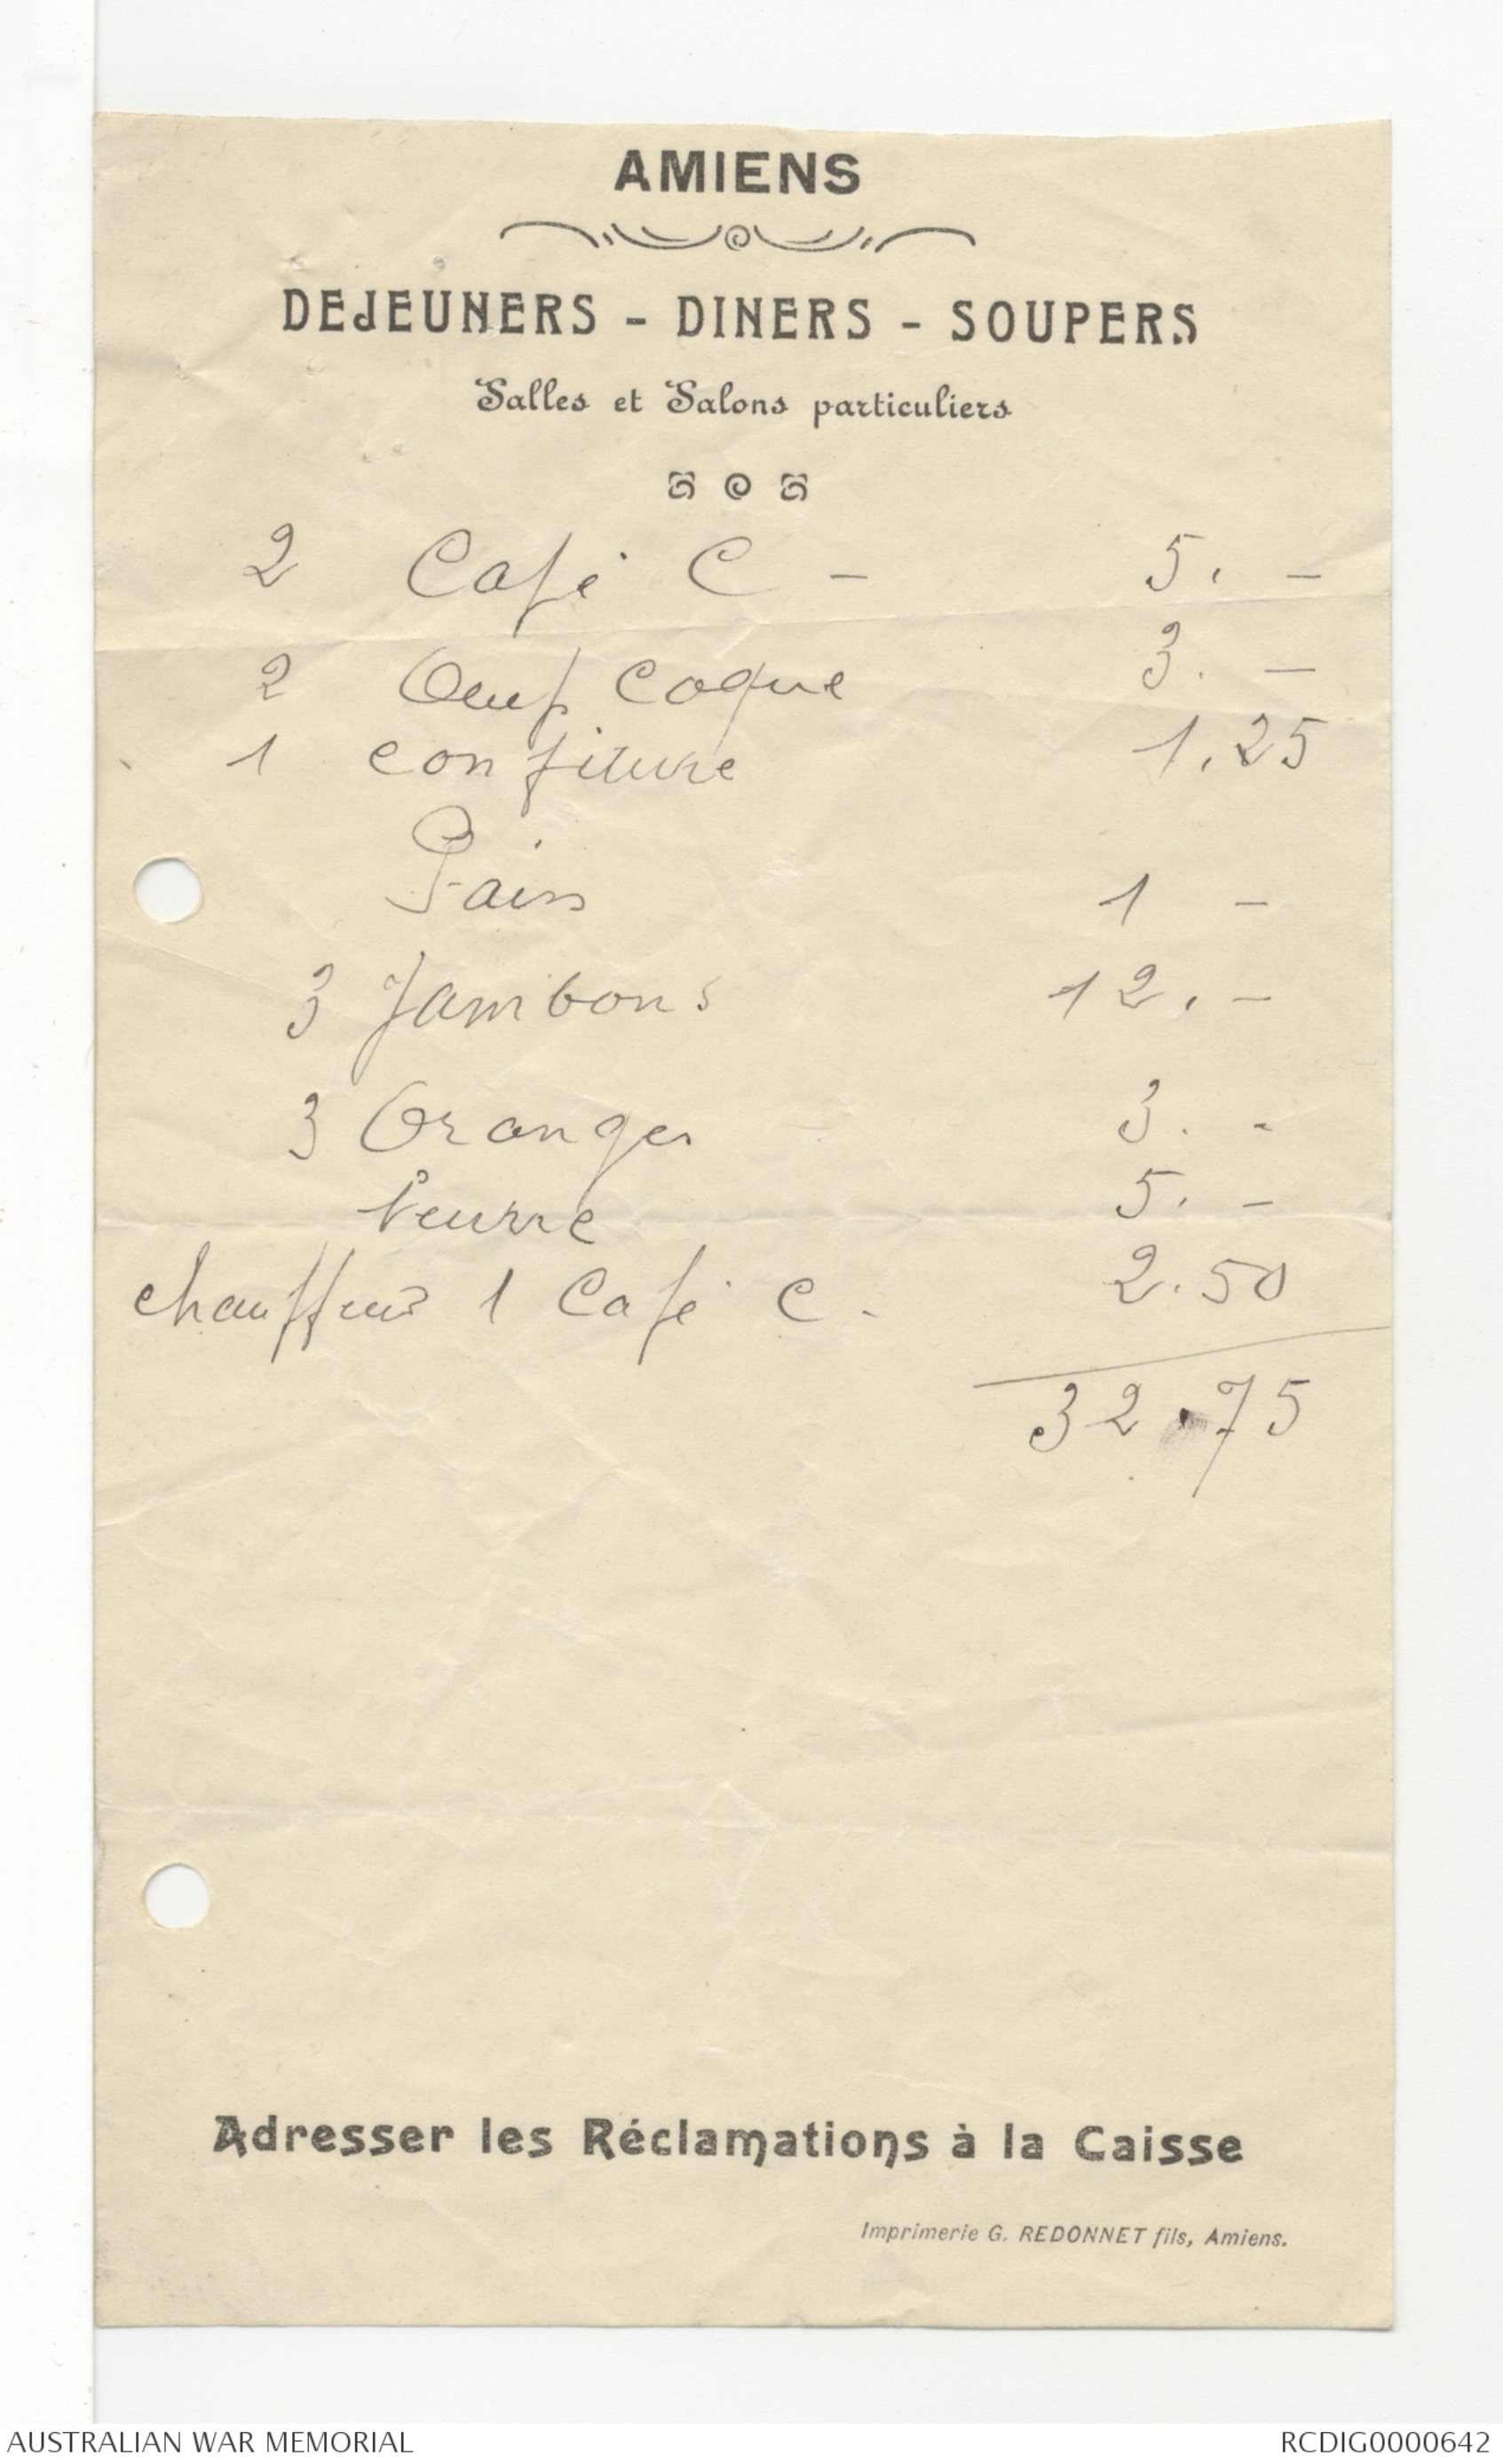 AMIENS
DEJEUNERS - DINERS - SOUPERS
Salles et Salons particuliers
2 Café C - 5. -
2 Oeuf Coque 3. -
1 confiture 1.25
Pain 1 -
3 Jambons 12. -
3 Oranges 3. -
beurre 5. -
chauffeur 1 Café C. 2.50
32.75
Adresser les Réclamations à la Caisse
Imprimerie G. REDONNET fils, Amiens.
AUSTRALIAN WAR MEMORIAL RCDIG0000642